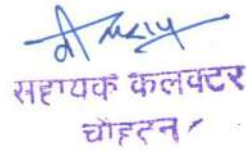 सहायक कलक्टर
चौहटन